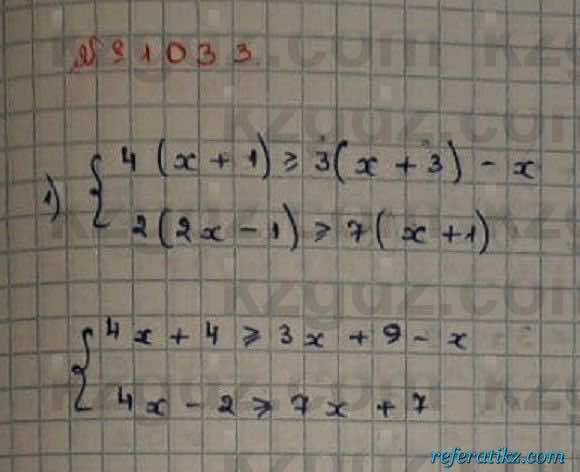 № 91033
1) { 4(x + 1) ≥ 3(x + 3) - x
2(2x - 1) ≥ 7(x + 1)
{ 4x + 4 ≥ 3x + 9 - x
4x - 2 ≥ 7x + 7
referatikz.com